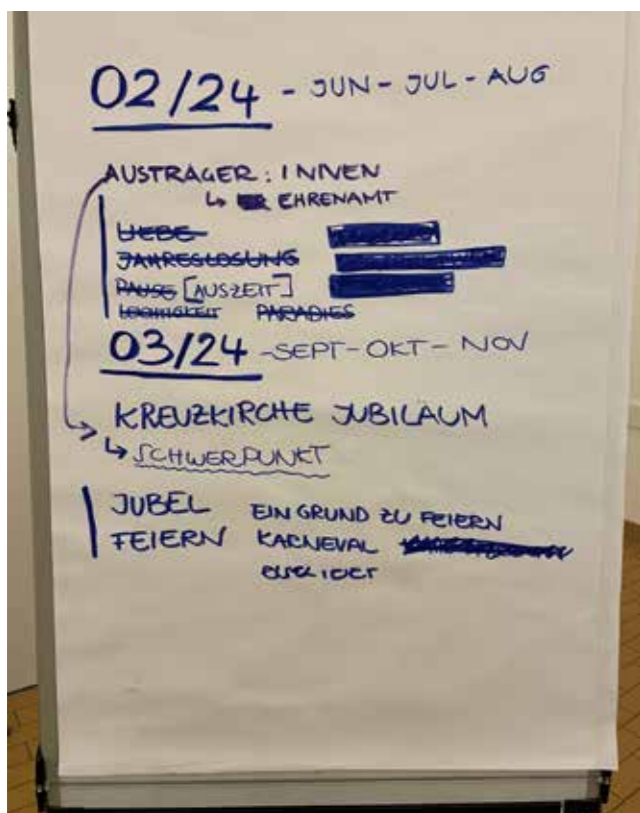 02/24 - JUN - JUL - AUG
AUSTRÄGER:INNEN
↳ EHRENAMT
LIEBE
JAHRESLOSUNG
PAUSE [AUSZEIT]
PARADIES
03/24 - SEPT - OKT - NOV
KREUZKIRCHE JUBILÄUM
↳ SCHWERPUNKT
JUBEL EIN GRUND ZU FEIERN
FEIERN KARNEVAL